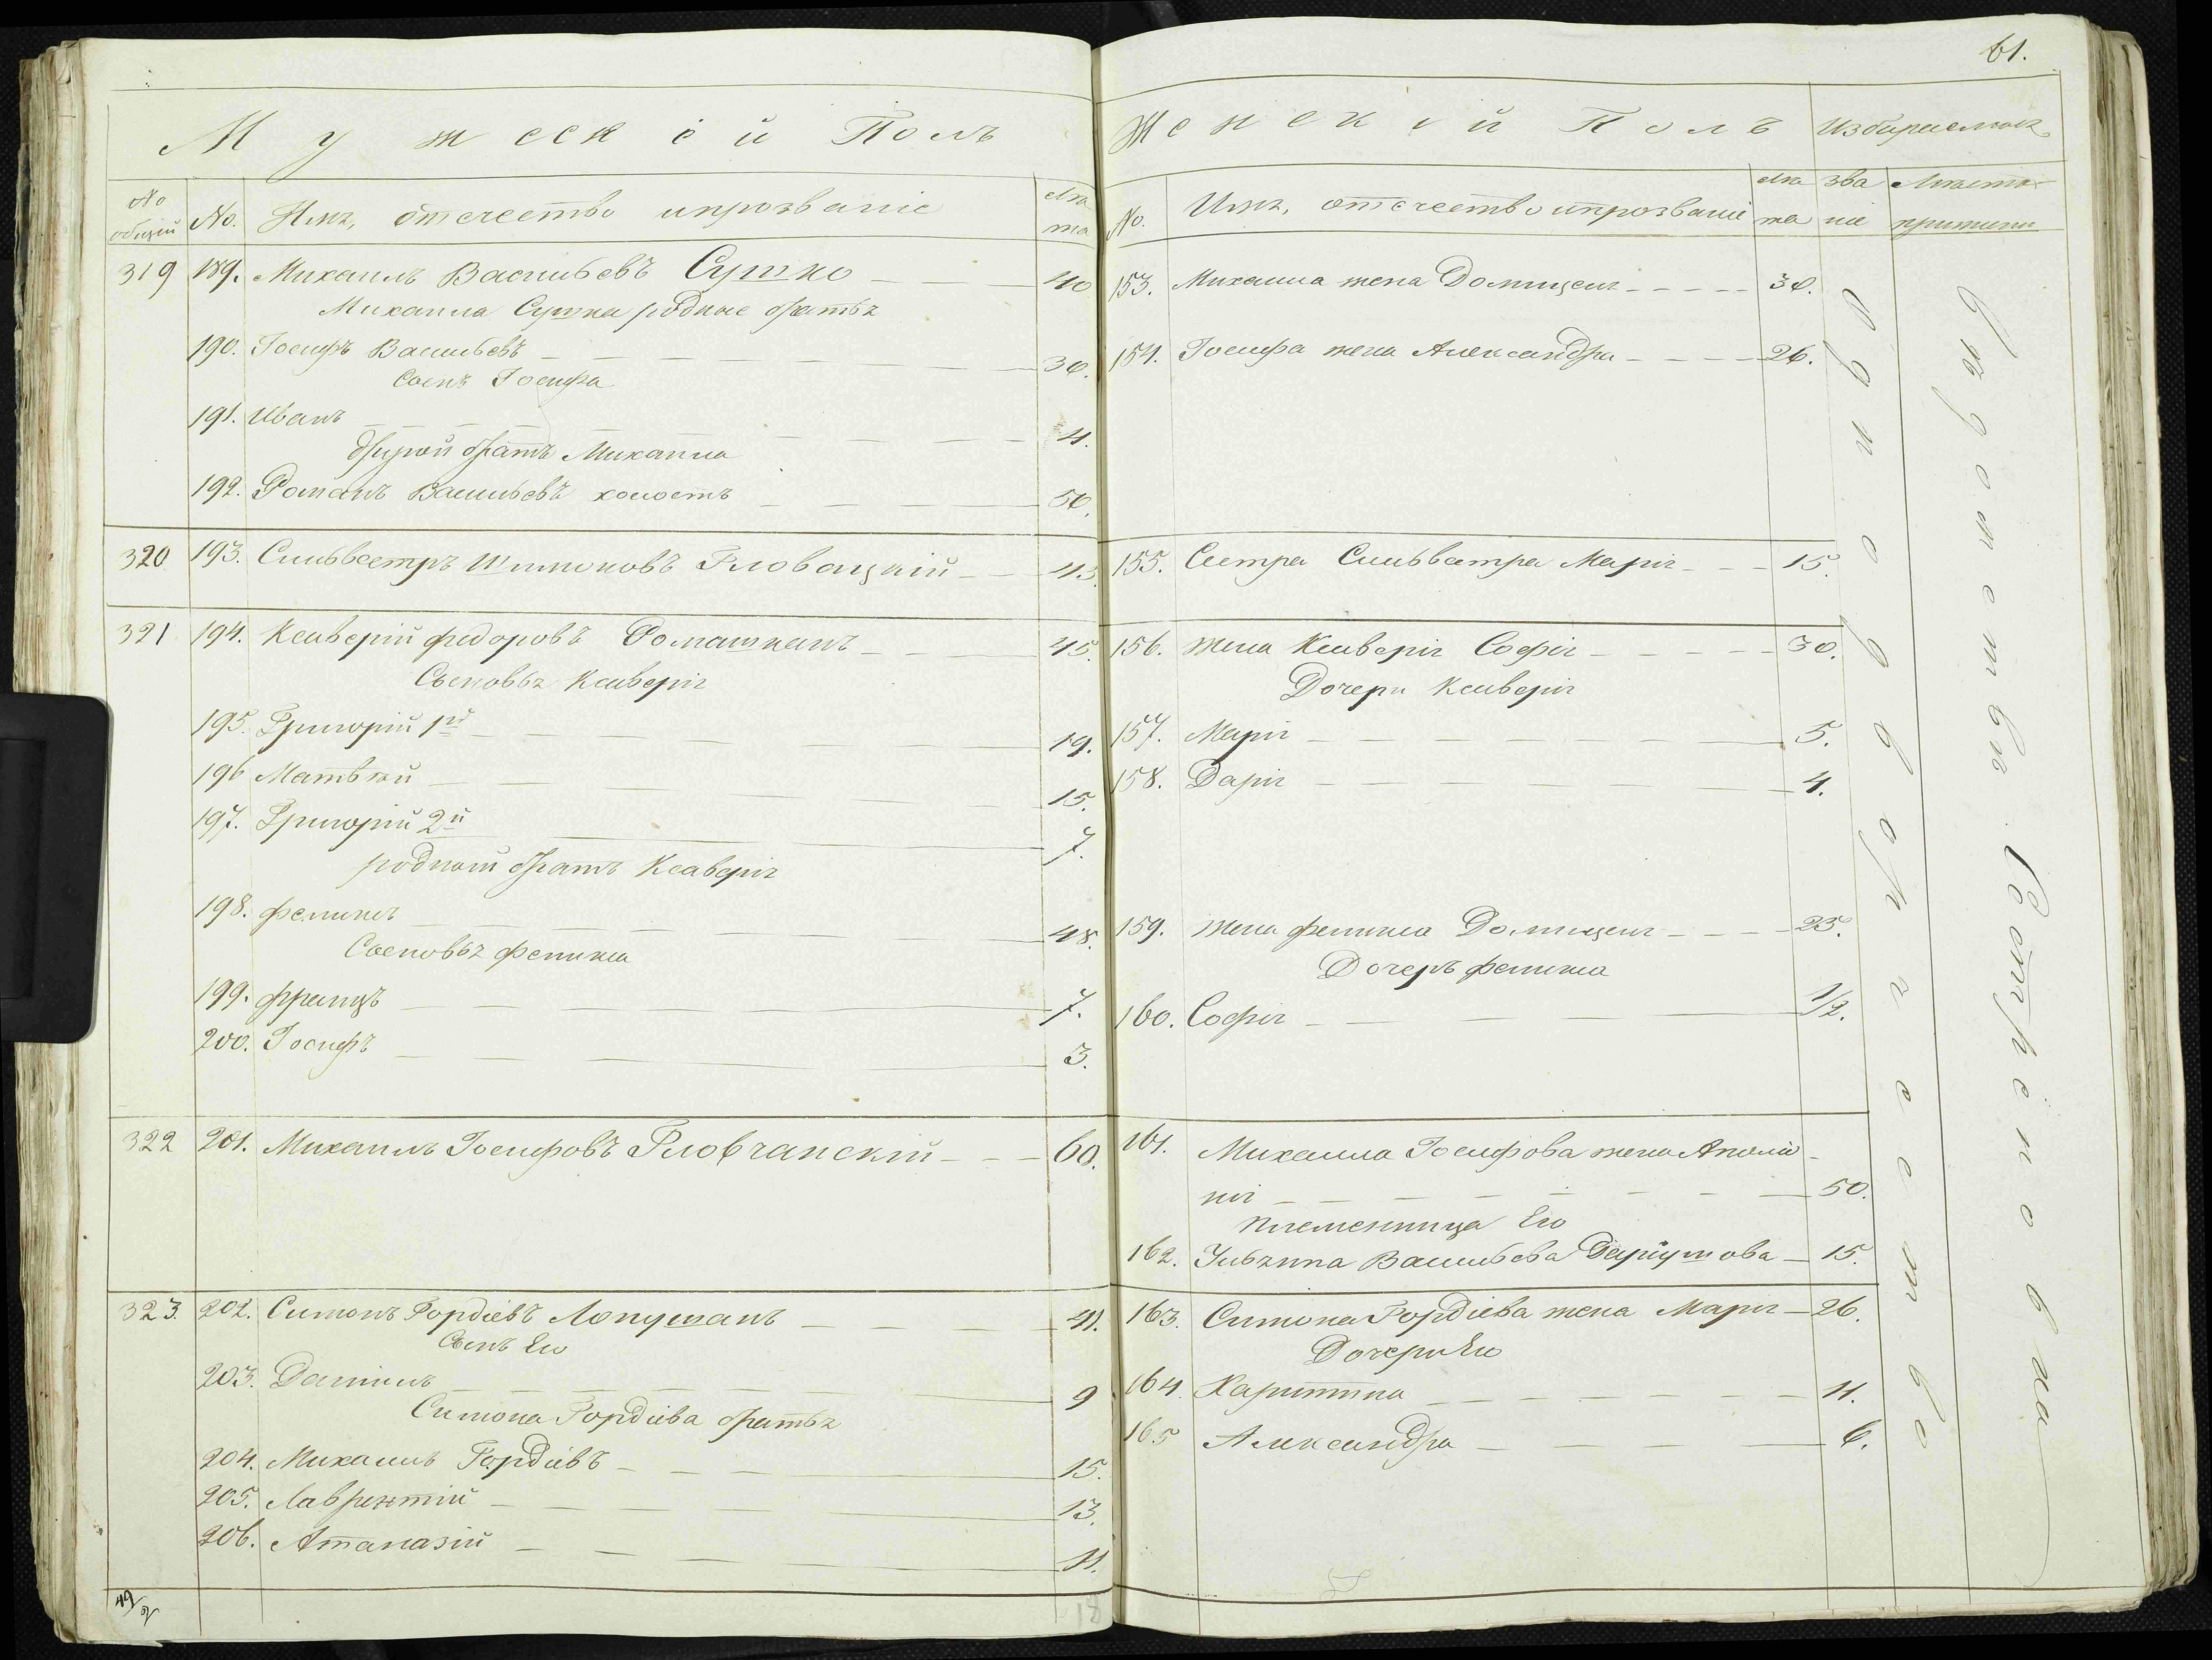 61.
Мужескій Полъ
№ общій
№.
Имя, отечество и прозваніе
Лѣта
319 189. Михаилъ Васильевъ Сушко 40
Михаила Сушка родные братья
190. Іосифъ Васильевъ 30.
Сынъ Іосифа
191. Иванъ 4.
другой братъ Михаила
192. Романъ Васильевъ холостъ 50.
320 193. Сильвестръ Шимоновъ Гловацкій 43.
321 194. Ксаверій Федоровъ Ромашканъ 45.
Сыновья Ксаверія
195. Григорій 1й 19.
196 Матвѣй 15.
197. Григорій 2й 7.
родной братъ Ксаверія
198. Феликсъ 48.
Сыновья Феликса
199. Францъ 7.
200. Іосифъ 3.
322 201. Михаилъ Іосифовъ Гловчанскій 60.
323. 202. Симонъ Гордіевъ Лопушанъ 41.
Сынъ Его
203. Даніилъ 9
Симона Гордіева братья
204. Михаилъ Гордіевъ 15.
205. Лаврентій 13.
206. Атаназій 11.
Женскій Полъ
Избираемыя
№.
Имя, отечество и прозваніе
Лѣта
званіе
Мѣсто
153. Михаила жена Домицеля 30.
154. Іосифа жена Александра 26.
155. Сестра Сильвестра Марія 15.
156. Жена Ксаверія Софія 30.
Дочери Ксаверія
157. Марія 5.
158. Дарія 4.
159. Жена Феликса Домицеля 25.
Дочерь Феликса
160. Софія 1/2.
161. Михаила Іосифова жена Аполо
нія 50.
племянница Его
162. Ульяна Васильева 15.
163. Симона Гордіева жена Марія 26.
Дочери Его
164. Харитина 11.
165 Александра 6.
Однодворчество